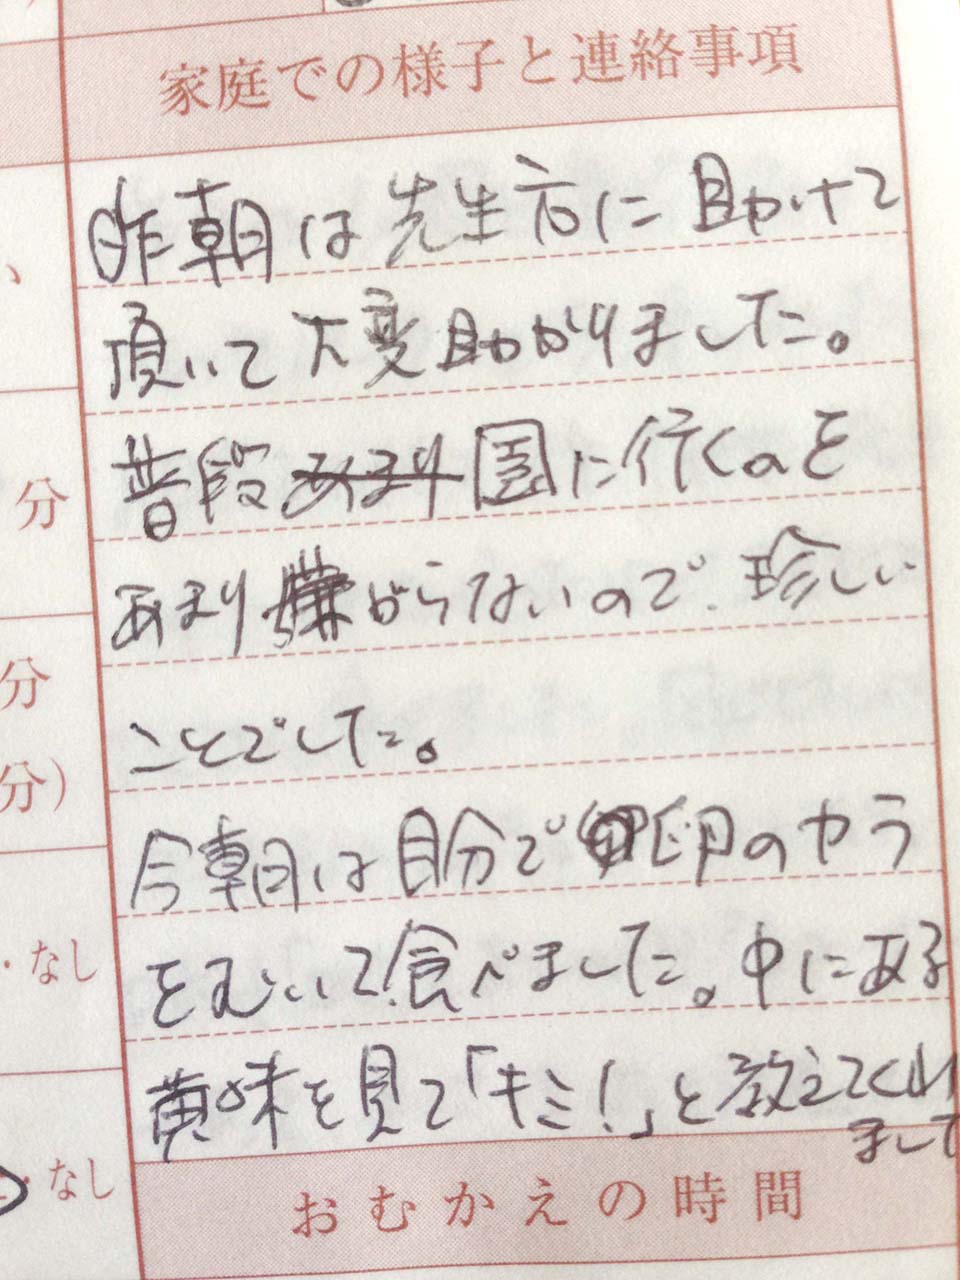 家庭での様子と連絡事項
昨朝は先生方に助けて
頂いて大変助かりました。
普段あまり園に行くのを
あまり嫌がらないので、珍しい
ことでした。
今朝は自分で卵のカラ
をむいて食べました。中にある
黄味を見て「キミ!」と教えてくれ
まして
おむかえの時間
分
分
分)
・なし
・なし